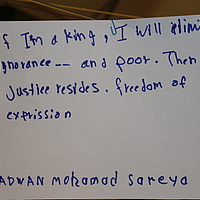 f I'm a king, I will elimi
gnorance -- and poor. Then
justice resides. freedom of
exprission
ADWAN mohamad sareya